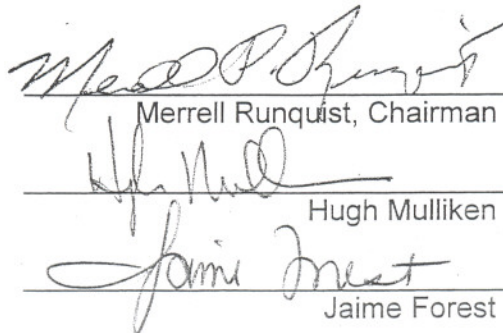 Merrell P. Runquist
Merrell Runquist, Chairman
Hugh Mulliken
Jaime Forest
Jaime Forest